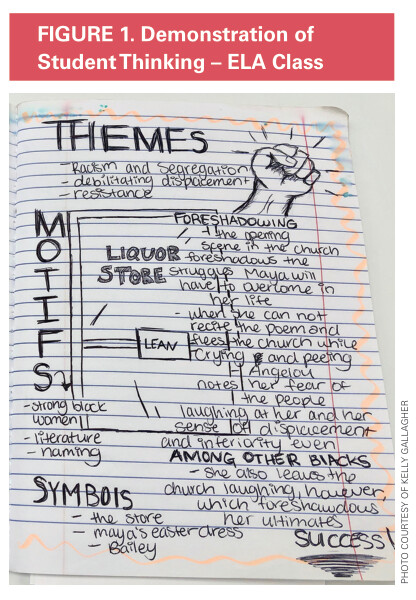 FIGURE 1. Demonstration of
Student Thinking – ELA Class
THEMES
- Racism and Segregation
- debilitating displacement
- resistance
MOTIFS
- strong black
women
- literature
- naming
LIQUOR
STORE
LEAN
FORESHADOWING
- the opening
scene in the church
foreshadows the
struggles Maya will
have to overcome in
her life
- when she can not
recite the poem and
flees the church while
crying and peeing
Angelou
notes her fear of
the people
laughing at her and her
sense of displacement
and inferiority even
AMONG OTHER BLACKS
- she also leaves the
church laughing, however,
which foreshawdows
her ultimates
SUCCESS!
SYMBOlS
- the store
- maya's easter dress
- Bailey
PHOTO COURTESY OF KELLY GALLAGHER